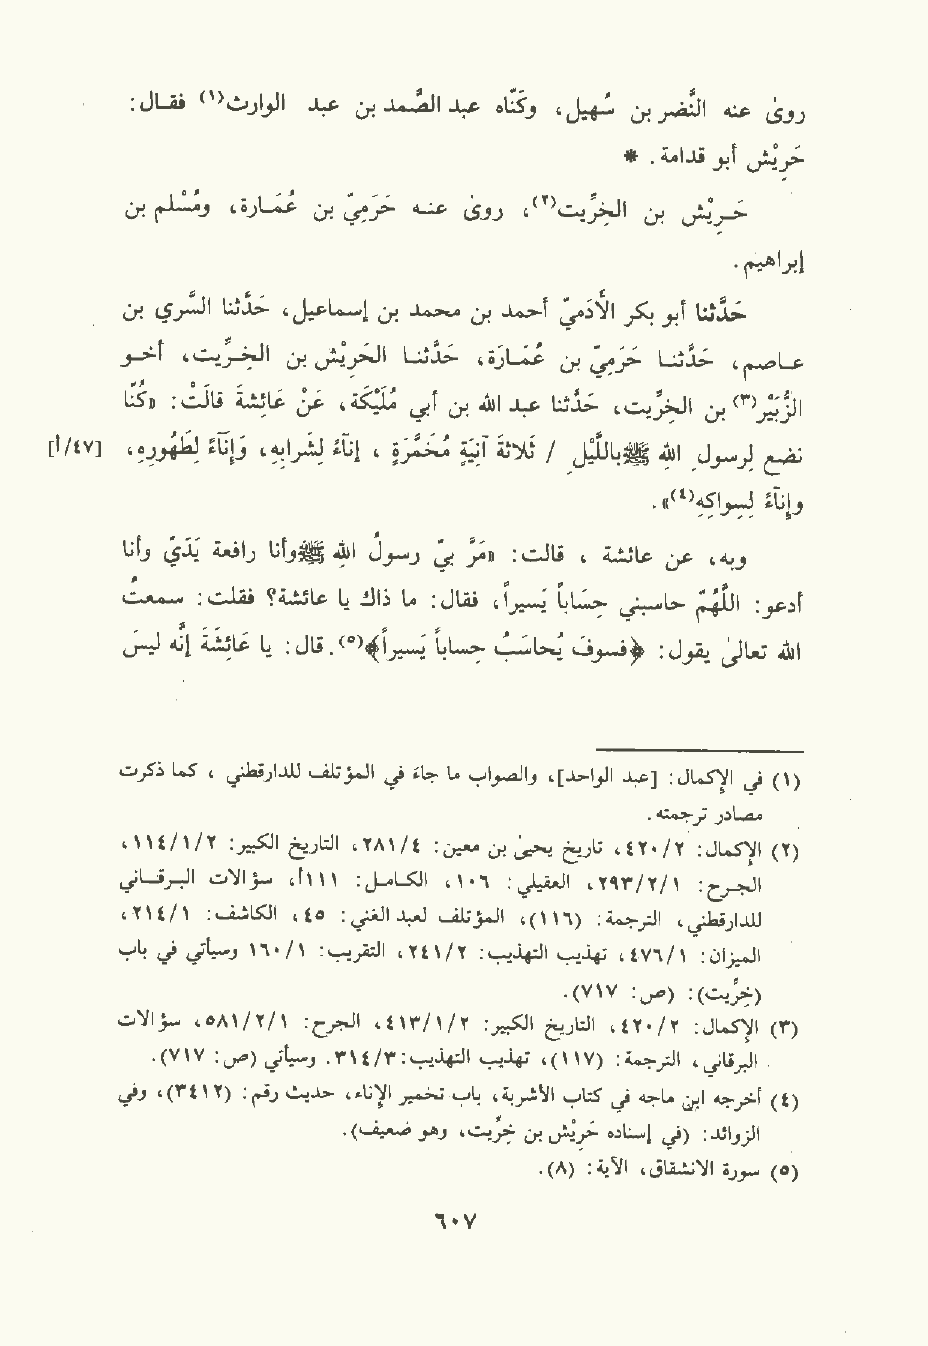 روىٰ عنه النَّضر بن سُهيل، وكَنَّاه عبد الصَّمد بن عبد الوارث(١) فقال:
حَرِيْش أبو قدامة. *
حَرِيْش بن الخِرِّيت(٢)، روىٰ عنه حَرَمِيّ بن عُمَارة، ومُسْلم بن
إبراهيم.
حَدَّثنا أبو بكر الأَدَميّ أحمد بن محمد بن إسماعيل، حَدَّثنا السَّري بن
عاصم، حَدَّثنا حَرَمِيّ بن عُمَارَة، حَدَّثنا الحَرِيْش بن الخِرِّيت، أخو
الزُّبَيْر(٣) بن الخِرِّيت، حَدَّثنا عبد الله بن أبي مُلَيْكَة، عَنْ عَائِشةَ قَالَتْ: «كُنَّا
نضع لِرسولِ الله ﷺ بِاللَّيْلِ / ثَلاثَةَ آنِيَةٍ مُخَمَّرَةٍ، إِنَآءً لِشَرابِهِ، وَإِنَآءً لِطَهُورِهِ، [٤٧/أ]
وإنَآءً لِسِواكِهِ(٤)».
وبه، عن عائشة، قالت: «مَرَّ بيَّ رسولُ الله ﷺ وأنا رافعة يَدَيَّ وأنا
أدعو: اللَّهُمَّ حاسبني حِسَاباً يَسيراً، فقال: ما ذاك يا عائشة؟ فقلت: سمعتُ
الله تعالىٰ يقول: ﴿فسوفَ يُحاسَبُ حِساباً يَسيراً﴾(٥). قال: يا عَائشَةَ إنَّه ليسَ
(١) في الإكمال: [عبد الواحد]، والصواب ما جاء في المؤتلف للدارقطني، كما ذكرت
مصادر ترجمته.
(٢) الإكمال: ٤٢٠/٢، تاريخ يحيىٰ بن معين: ٢٨١/٤، التاريخ الكبير: ١١٤/١/٢،
الجرح: ٢٩٣/٢/١، العقيلي: ١٠٦، الكامل: ١١١أ، سؤالات البرقاني
للدارقطني، الترجمة: (١١٦)، المؤتلف لعبد الغني: ٤٥، الكاشف: ٢١٤/١،
الميزان: ٤٧٦/١، تهذيب التهذيب: ٢٤١/٢، التقريب: ١٦٠/١ وسيأتي في باب
(خِرِّيت): (ص: ٧١٧).
(٣) الإكمال: ٤٢٠/٢، التاريخ الكبير: ٤١٣/١/٢، الجرح: ٥٨١/٢/١، سؤالات
البرقاني، الترجمة: (١١٧)، تهذيب التهذيب: ٣١٤/٣. وسيأتي (ص: ٧١٧).
(٤) أخرجه ابن ماجه في كتاب الأشربة، باب تخمير الإناء، حديث رقم: (٣٤١٢)، وفي
الزوائد: (في إسناده حَرِيْش بن خِرِّيت، وهو ضعيف).
(٥) سورة الانشقاق، الآية: (٨).
٦٠٧